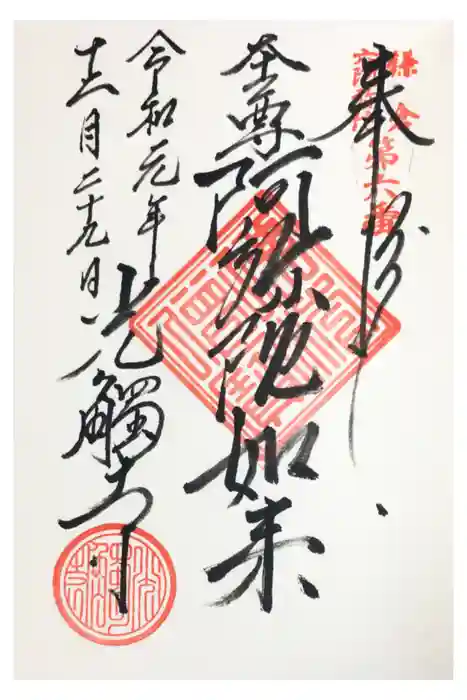 鎌倉
第六番
奉拝
本尊
阿弥陀如来
令和元年
十二月二十九日
光觸寺